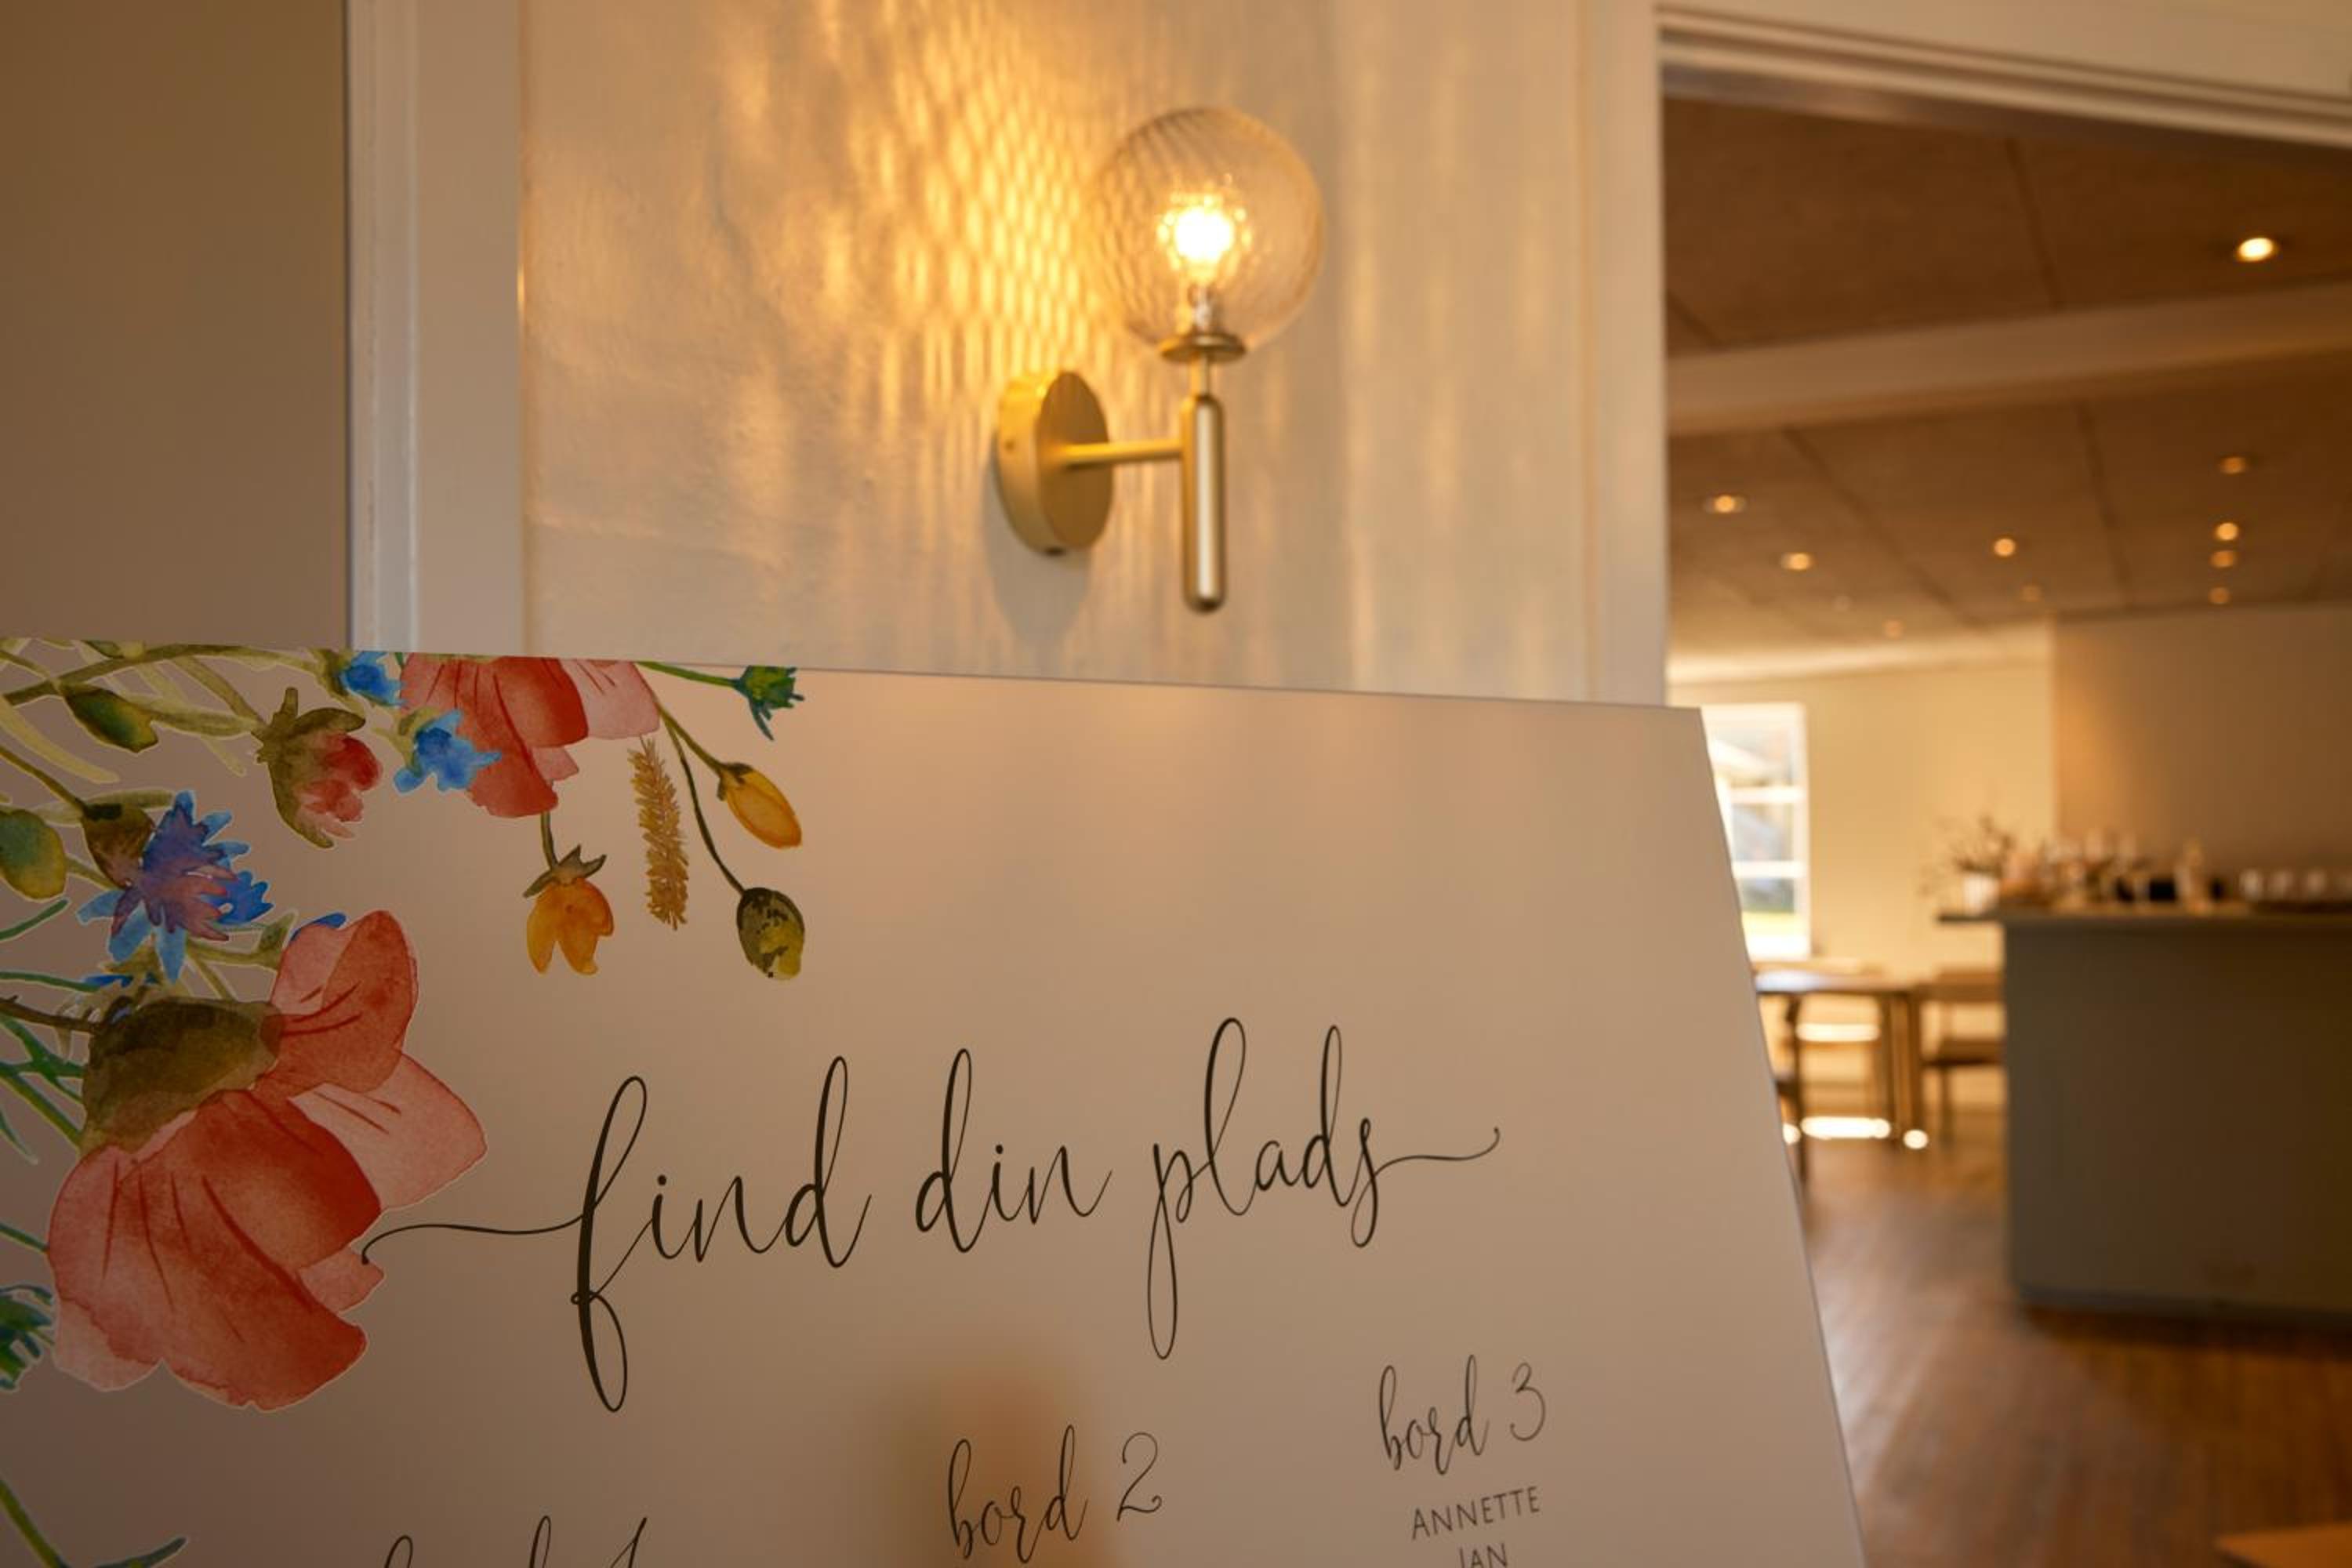 find din plads
bord 1
bord 2
bord 3
ANNETTE
JAN